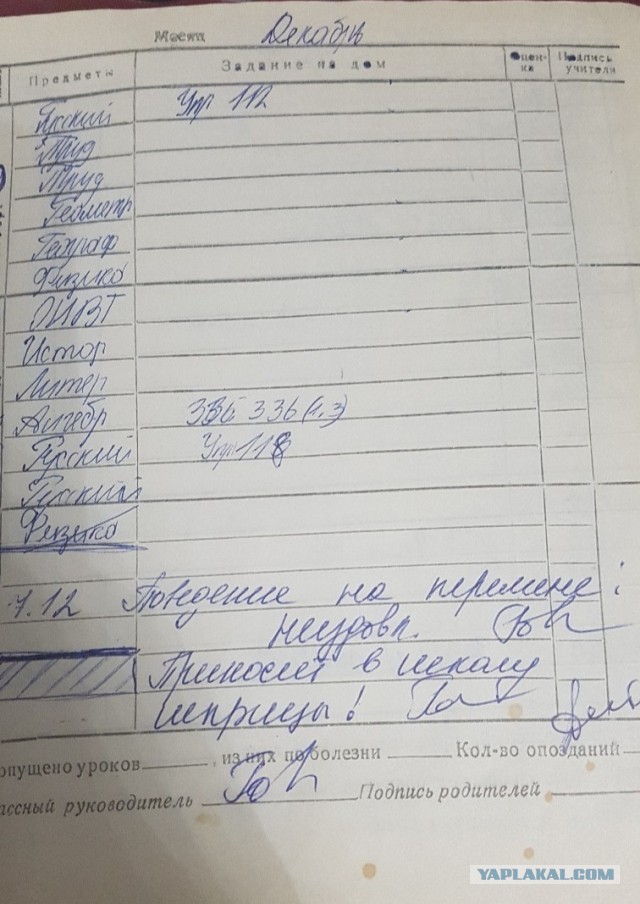 Месяц Декабрь
Предметы Задание на дом Оцен-ка Подпись учителя
Русский Упр 112
Труд
Труд
Геометр
Географ
Физика
ОИВТ
Истор
Литер
Алгебр 335 336 (1,3)
Русский Упр 118
Русский
Физика
7.12 Поведение на перемене:
неудовл.
Приносил в школу
шприцы!
опущено уроков , из них по болезни Кол-во опозданий
ассный руководитель Подпись родителей
YAPLAKAL.COM